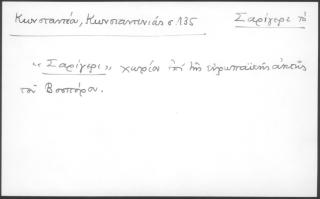 Κωνσταντίου, Κωνσταντινιάς σ 135 Σαρίγερι τὸ
«Σαρίγερι» χωρίον ἐπὶ τῆς εὐρωπαϊκῆς ἀκτῆς
τοῦ Βοσπόρου.